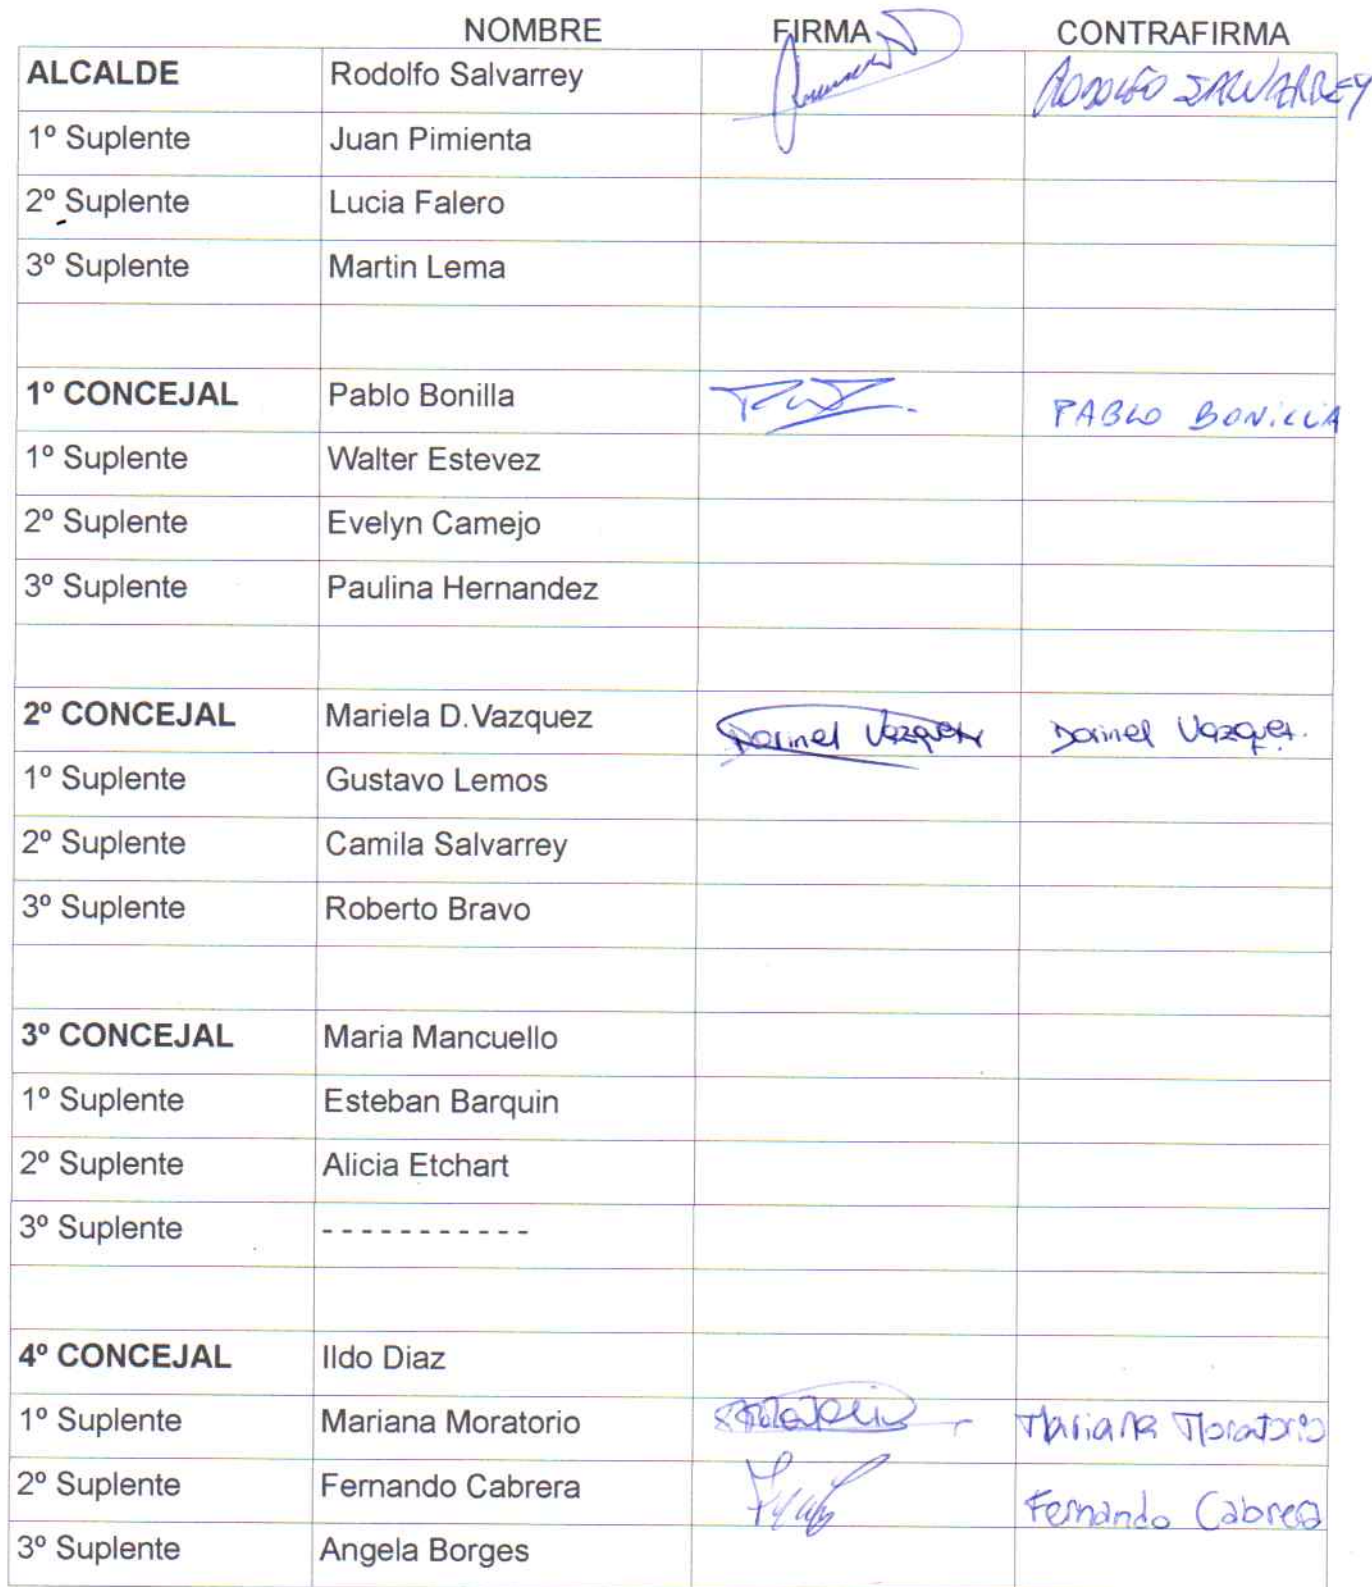 NOMBRE FIRMA CONTRAFIRMA
ALCALDE Rodolfo Salvarrey RODOLFO SALVARREY
1º Suplente Juan Pimienta
2º Suplente Lucia Falero
3º Suplente Martin Lema
1º CONCEJAL Pablo Bonilla PABLO BONiLLA
1º Suplente Walter Estevez
2º Suplente Evelyn Camejo
3º Suplente Paulina Hernandez
2º CONCEJAL Mariela D.Vazquez Dorinel Vazquez Dorinel Vazquez.
1º Suplente Gustavo Lemos
2º Suplente Camila Salvarrey
3º Suplente Roberto Bravo
3º CONCEJAL Maria Mancuello
1º Suplente Esteban Barquin
2º Suplente Alicia Etchart
3º Suplente - - - - - - - - - - -
4º CONCEJAL Ildo Diaz
1º Suplente Mariana Moratorio Mariana Moratorio
2º Suplente Fernando Cabrera Fernando Cabrera
3º Suplente Angela Borges